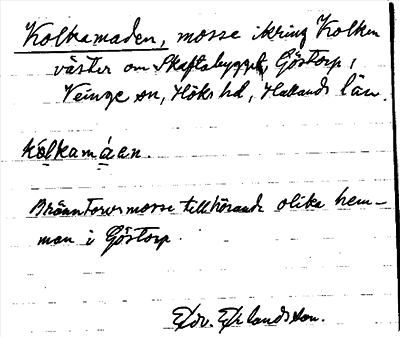 Kolkamaden, mosse ikring Kolken
väster om Skaftabygget, Göstorp,
Veinge sn, Höks hd, Hallands län.
Kolkamáen.
Bränntorvsmosse tillhörande olika hem-
man i Göstorp.
Edv. Erlandsson.